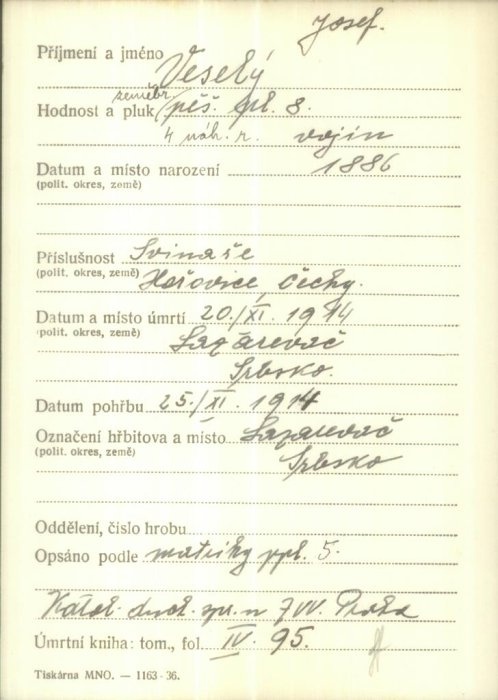 Josef.
Příjmení a jméno Veselý
zeměbr.
Hodnost a pluk pěš. pl. 8.
4 náh. r. vojín
Datum a místo narození 1886
(polit. okres, země)
Příslušnost Svinaře
(polit. okres, země) Hořovice, Čechy.
Datum a místo úmrtí 20./XI. 1914
(polit. okres, země) Lazarevač
Srbsko.
Datum pohřbu 25./XI. 1914
Označení hřbitova a místo Lazarevač
(polit. okres, země) Srbsko
Oddělení, číslo hrobu
Opsáno podle matriky ppl. 5.
Katol. duch. spr. n ZVV. Praha
Úmrtní kniha: tom., fol. IV. 95.
Tiskárna MNO. — 1163-36.